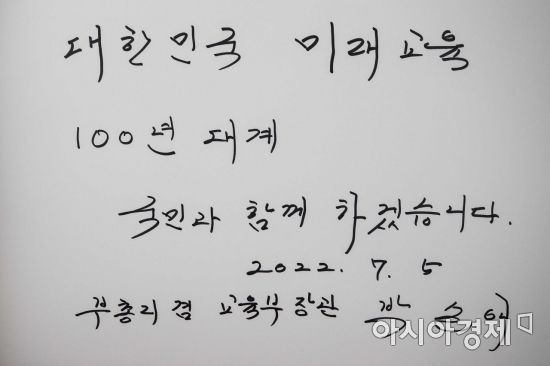 대한민국 미래교육
100년 대계
국민과 함께 하겠습니다.
2022. 7. 5
부총리 겸 교육부장관 박순애
아시아경제